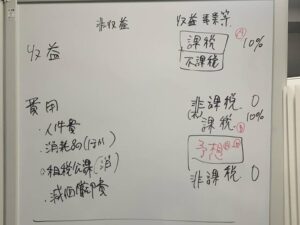 非収益 収益事業等
収益 課税 10%
不課税
費用 非課税 0
・人件費 課税 10%
・消耗品
・租税公課(消 予想
・減価償却費 非課税 0